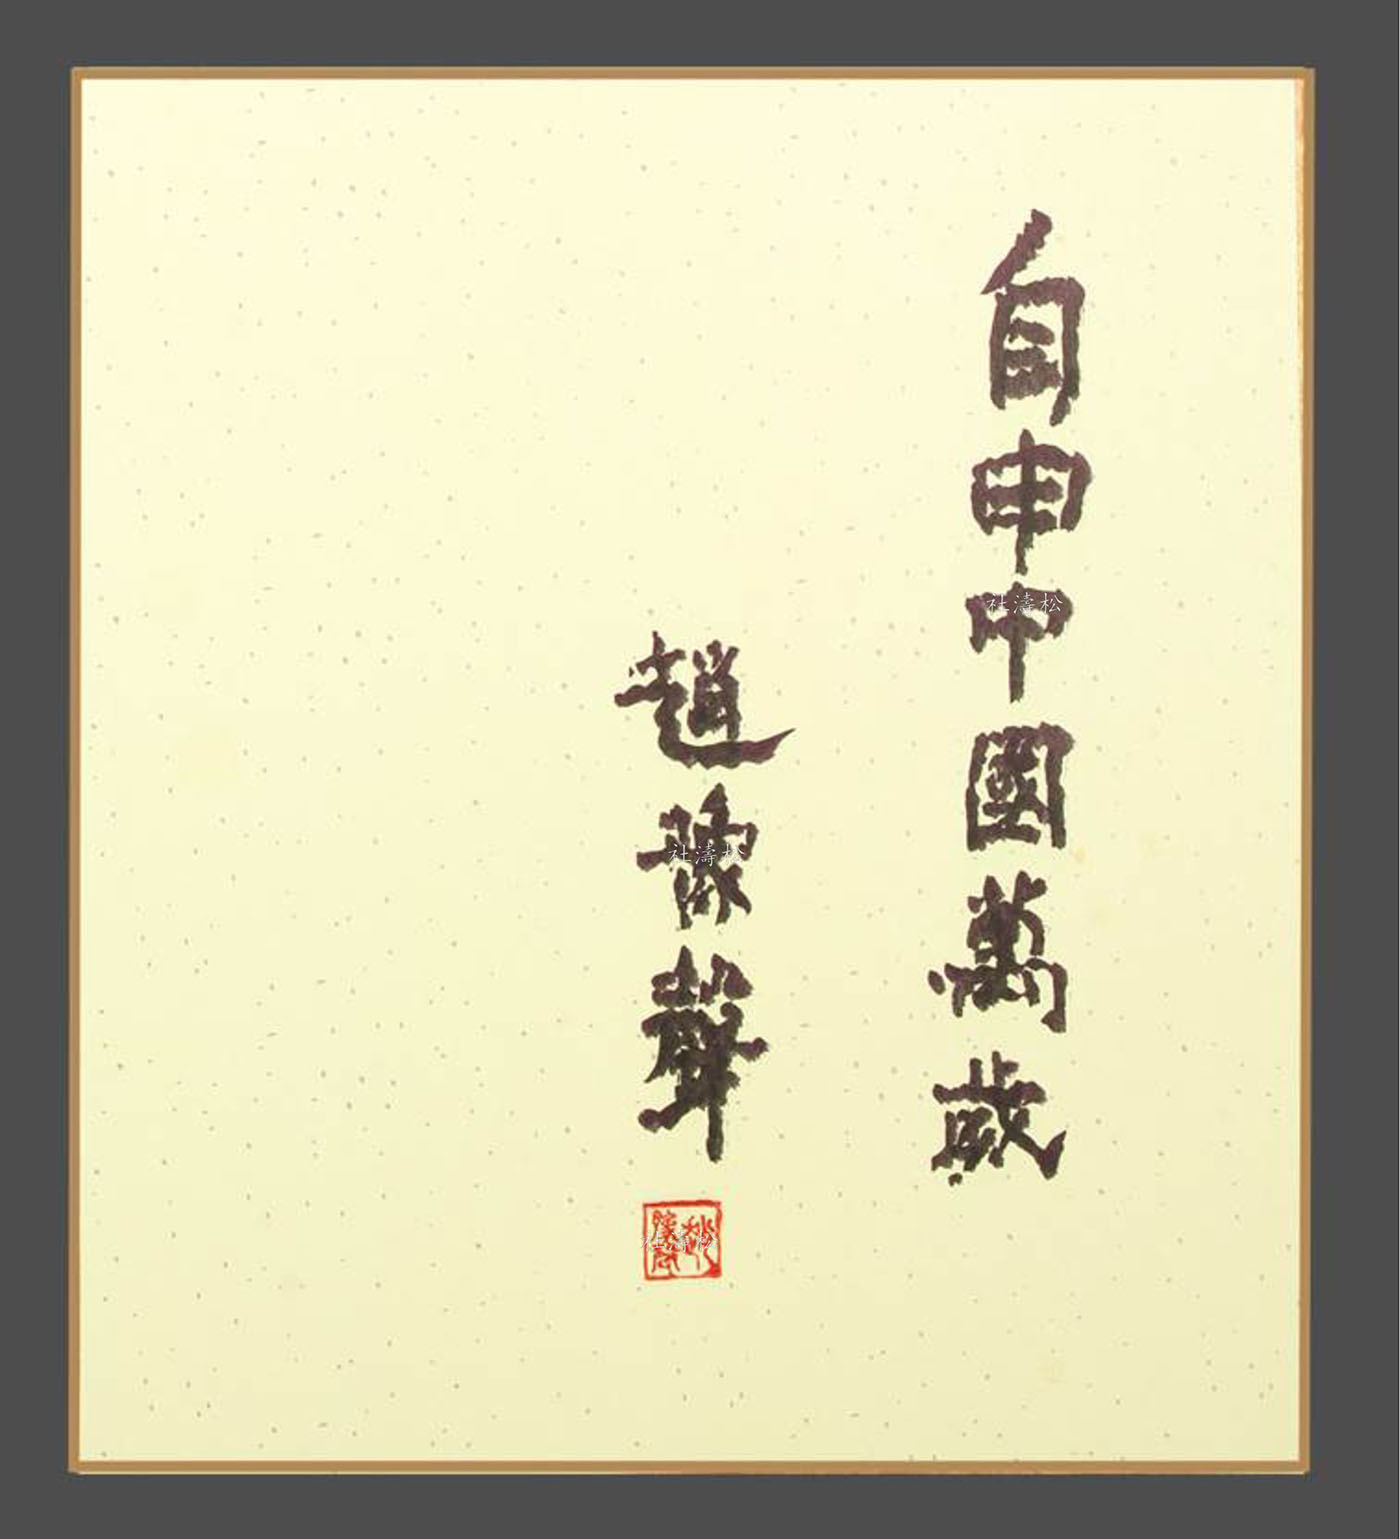 自由中國萬歲
趙豫聲
社濤松
社濤松
社濤松